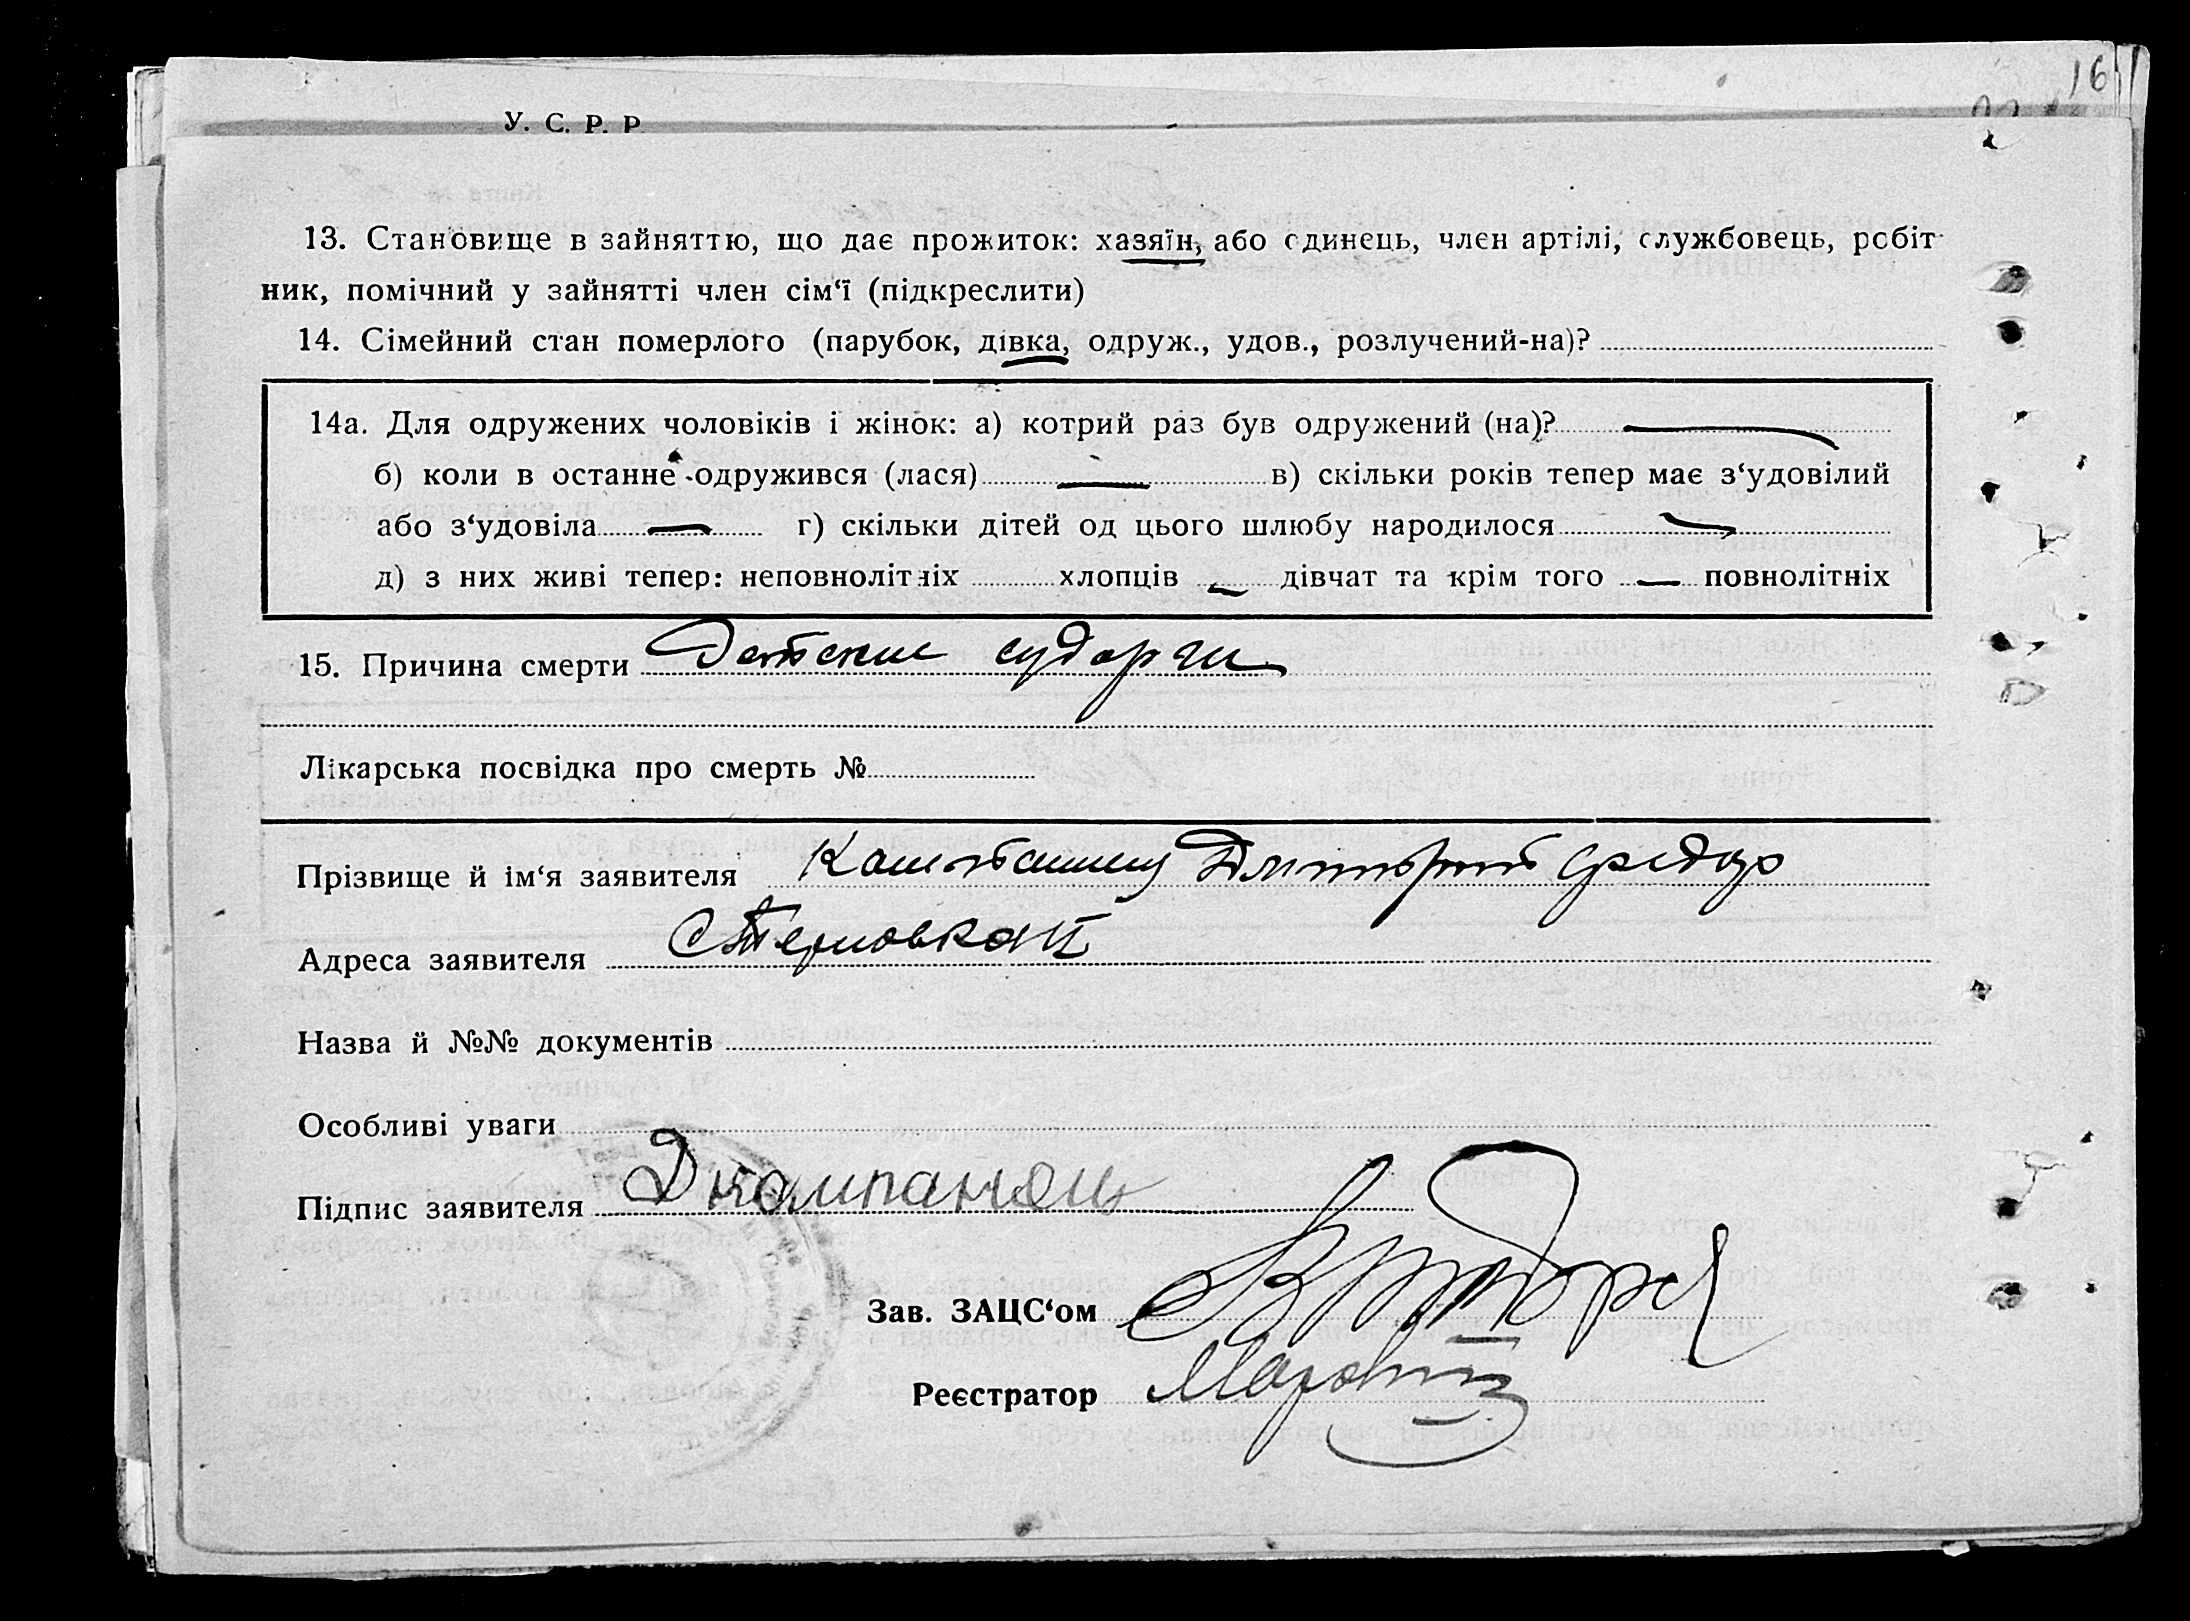 16
У. С. Р. Р
13. Становище в зайняттю, що дає прожиток: хазяїн, або одинець, член артілі, службовець, робіт-
ник, помічний у зайнятті член сім‘ї (підкреслити)
14. Сімейний стан померлого (парубок, дівка, одруж., удов., розлучений-на)?
14а. Для одружених чоловіків і жінок: а) котрий раз був одружений (на)?
б) коли в останнє одружився (лася) в) скільки років тепер має з‘удовілий
або з‘удовіла г) скільки дітей од цього шлюбу народилося
д) з них живі тепер: неповнолітніх хлопців дівчат та крім того повнолітніх
15. Причина смерти Детские судорги
Лікарська посвідка про смерть №
Прізвище й ім‘я заявителя
Адреса заявителя
Назва й №№ документів
Особливі уваги
Підпис заявителя Д Кампанец
Зав. ЗАЦС‘ом
Реєстратор